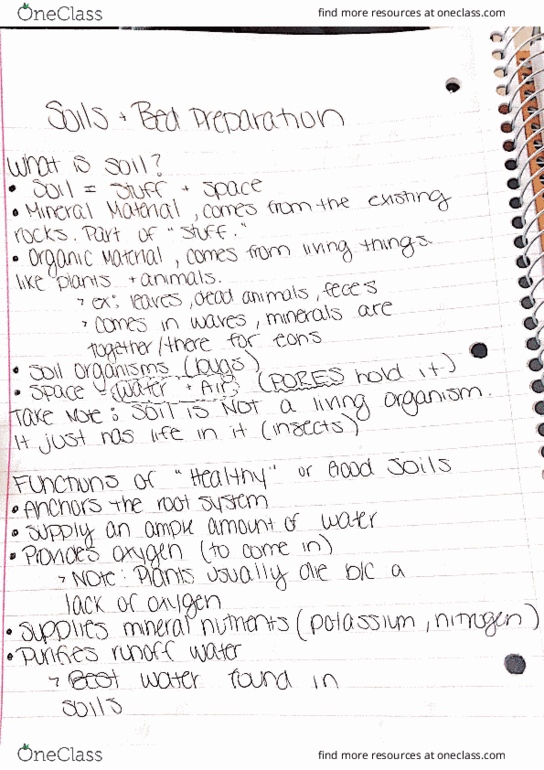 OneClass
find more resources at oneclass.com
Soils + Bed Preparation
What is soil?
• Soil = Stuff + Space
• Mineral Material, comes from the existing
rocks. Part of "stuff."
• Organic Material, comes from living things.
like plants + animals.
> ex: leaves, dead animals, feces
> comes in waves, minerals are
together/there for eons
• Soil organisms (bugs)
• Space - (Water + Air) (PORES hold it)
Take Note: Soil is NOT a living organism.
It just has life in it (insects)
Functions of "Healthy" or Good Soils
• Anchors the root system
• Supply an ample amount of water
• Provides oxygen (to come in)
> Note: Plants usually die b/c a
lack of oxygen
• Supplies mineral nutrients (potassium, nitrogen)
• Purifies runoff water
> Best water found in
soils
OneClass
find more resources at oneclass.com